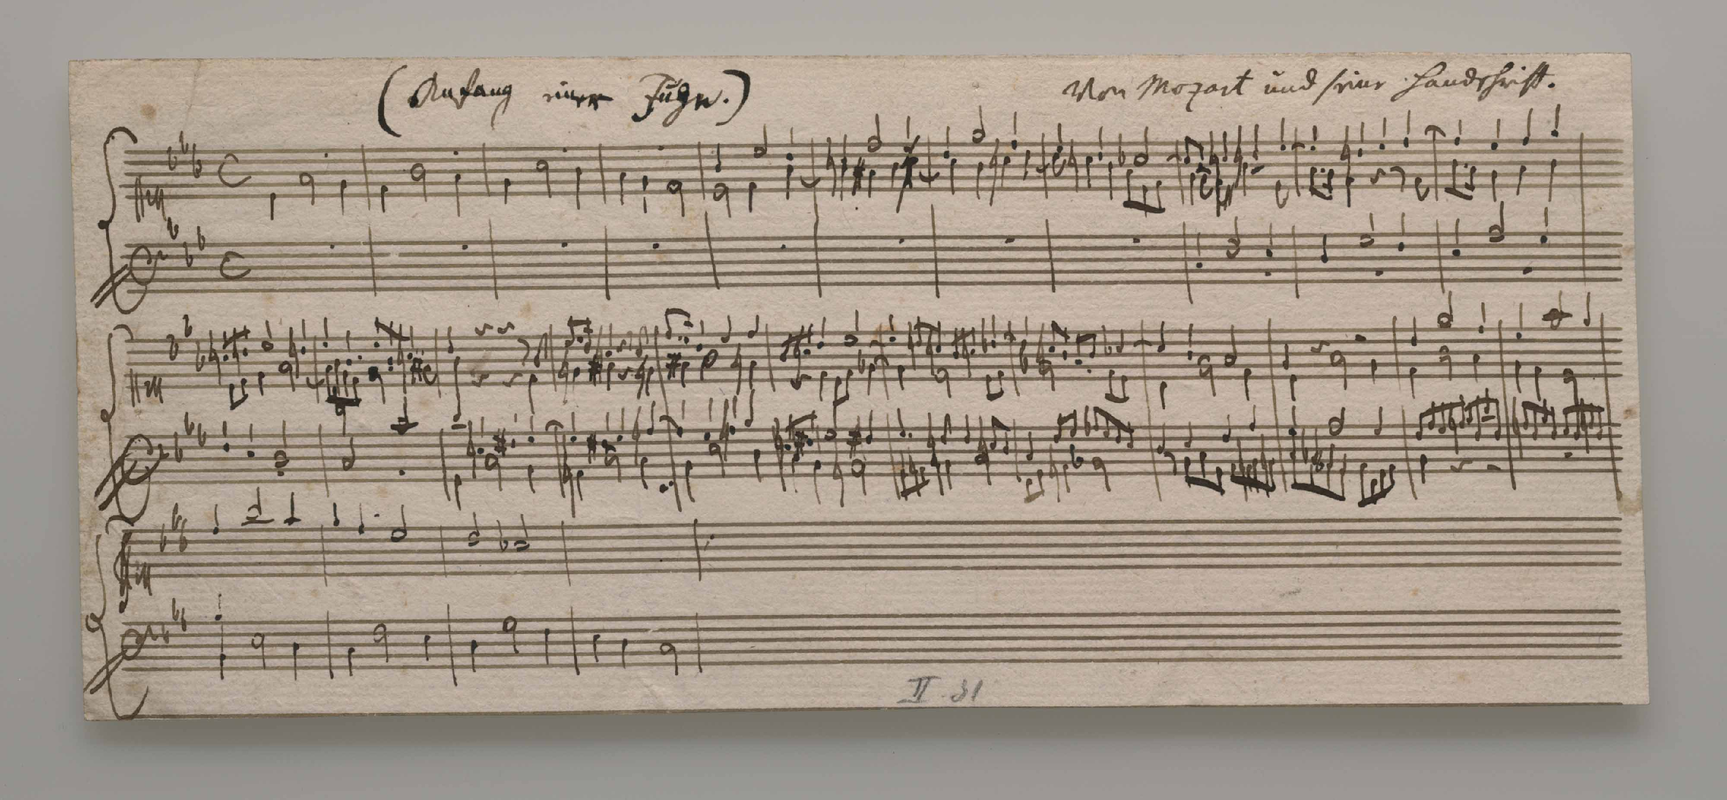 (Anfang einer Fuge.)
Von Mozart und seiner Handschrift.
II